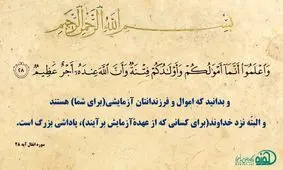 بسم الله الرحمن الرحيم
وَاعْلَمُوا أَنَّمَا أَمْوَالُكُمْ وَأَوْلَادُكُمْ فِتْنَةٌ وَأَنَّ اللَّهَ عِندَهُ أَجْرٌ عَظِيمٌ ٢٨
و بدانید که اموال و فرزندانتان آزمایشی(برای شما) هستند
و البتّه نزد خداوند(برای کسانی که از عهدهٔ آزمایش برآیند)، پاداشی بزرگ است.
سوره انفال آیه ۲۸